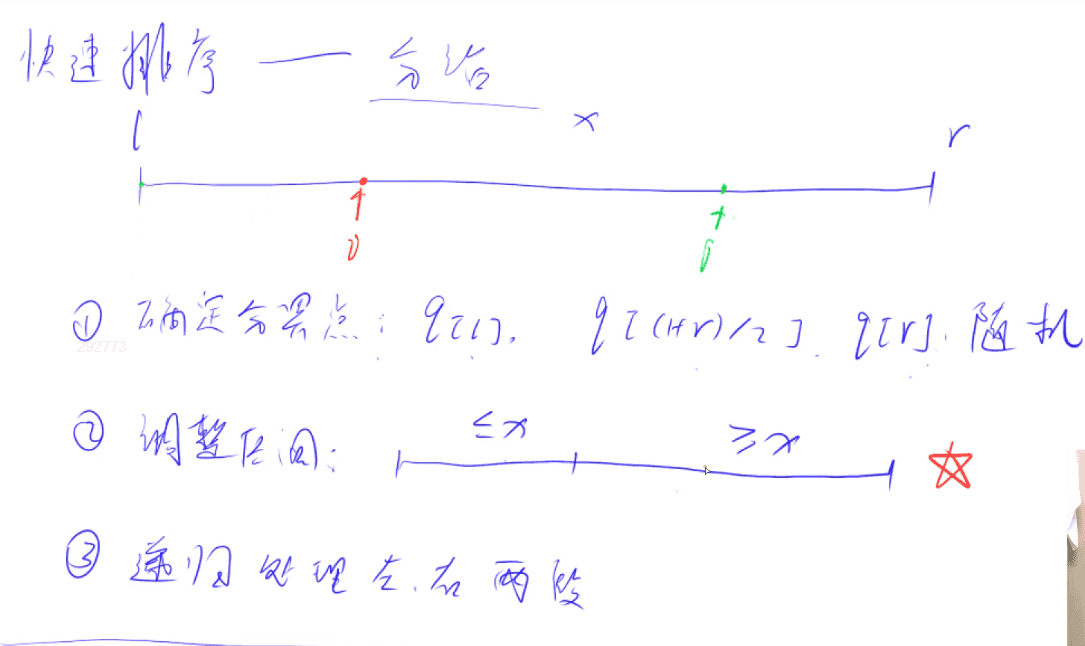 快速排序 —— 分治
x
l r
① 确定分界点: q[l], q[(l+r)/2], q[r], 随机
292773
② 调整区间: ≤x ≥x
③ 递归处理左、右两段